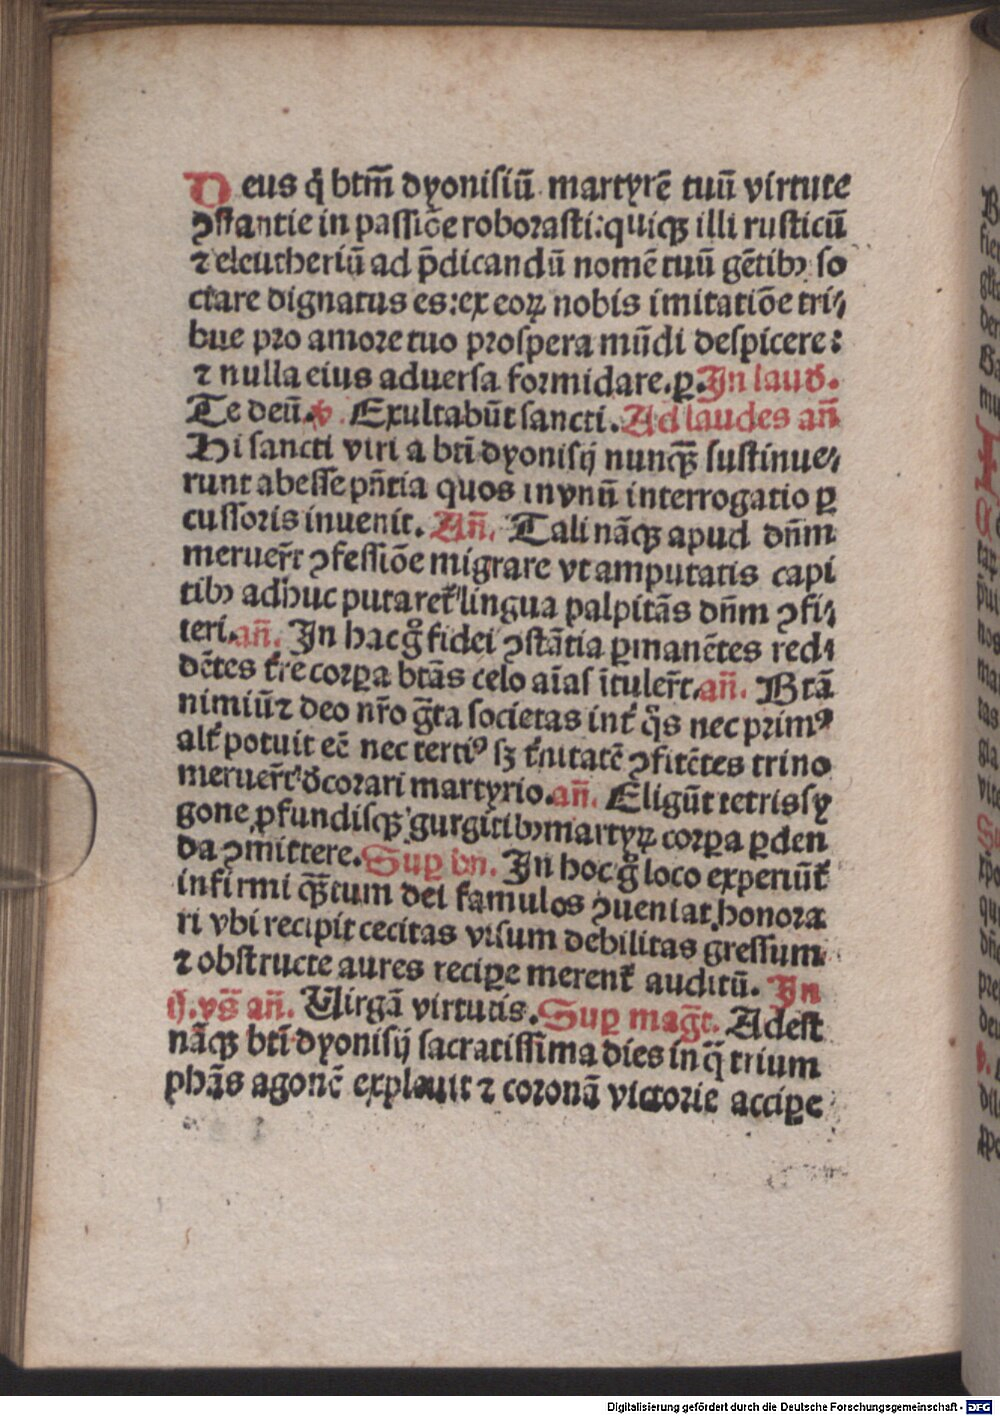 Deus q̇ btm̄ dyonisiū martyrē tuū virtute
ꝯstantie in passiōe roborasti: quiqꝫ illi rusticū
⁊ eleutheriū ad p̄dicandū nomē tuū gētibꝰ so
ciare dignatus es: ex eoꝝ nobis imitatiōe tri⸗
bue pro amore tuo prospera mūdi despicere:
⁊ nulla eius aduersa formidare. ꝑ. In laud̄.
Te deū. ꝟ. Exultabūt sancti. Ad laudes añ
Hi sancti viri a bti dyonisij nunqꝫ̄ sustinue⸗
runt abesse pñtia quos in vnū interrogatio ꝑ
cussoris inuenit. Añ. Tali nāqꝫ apud dñm
meruer̄t ꝯfessiōe migrare vt amputatis capi
tibꝰ adhuc putaret᷑ lingua palpitās dñm ꝯfi⸗
teri. añ. In hac g̊ fidei ꝯstātia ꝑmanētes red⸗
dētes t᷑re corꝑa btās celo aīas ītuler̄t. añ. Btā
nimiū ⁊ deo nr̄o ḡta societas int᷑ q̊s nec primꝰ
alt᷑ potuit eē nec tertiꝰ sꝫ t᷑nitatē ꝯfitētes trino
meruer̄t d̄corari martyrio. añ. Eligūt tetris sy
gone ꝓfundisqꝫ gurgitibꝰ martyꝝ corꝑa ꝑden
da ꝯmittere. Suꝑ bn̄. In hoc g̊ loco experiūt᷑
infirmi qꝫ̄tum dei famulos ꝯueniat honora
ri vbi recipit cecitas visum debilitas gressum
⁊ obstructe aures reciꝑe merent᷑ auditū. In
ij. vs̄ añ. Uirgā virtutis. Suꝑ maḡt. Adest
nāqꝫ bti dyonisij sacratissima dies in q̄ trium
phās agonē expleuit ⁊ coronā victorie acciꝑe
Digitalisierung gefördert durch die Deutsche Forschungsgemeinschaft - DFG